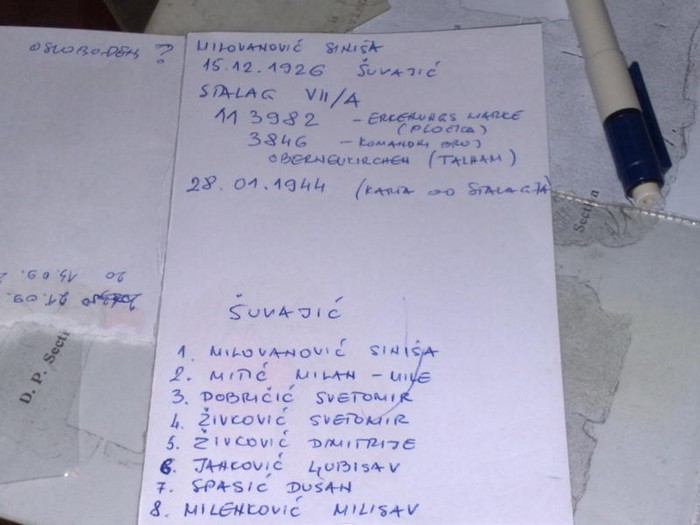 OSLOBOĐEN ?
MILOVANOVIĆ SINIŠA
15.12.1926 ŠUVAJIĆ
STALAG VII/A
113982 - ERKERUNGS MARKE
(PLOČICA)
3846 - KOMANDNI BROJ
OBERNEUKIRCHEN (TALHAM)
28.01.1944 (KARTA OD STALAGA)
20 15.09.
21.09.
ŠUVAJIĆ
1. MILOVANOVIĆ SINIŠA
2. MITIĆ MILAN - MILE
3. DOBRIČIĆ SVETOMIR
4. ŽIVKOVIĆ SVETOMIR
5. ŽIVKOVIĆ DIMITRIJE
6. JANKOVIĆ LJUBISAV
7. SPASIĆ DUŠAN
8. MILENKOVIĆ MILISAV
D. P. Section
Section